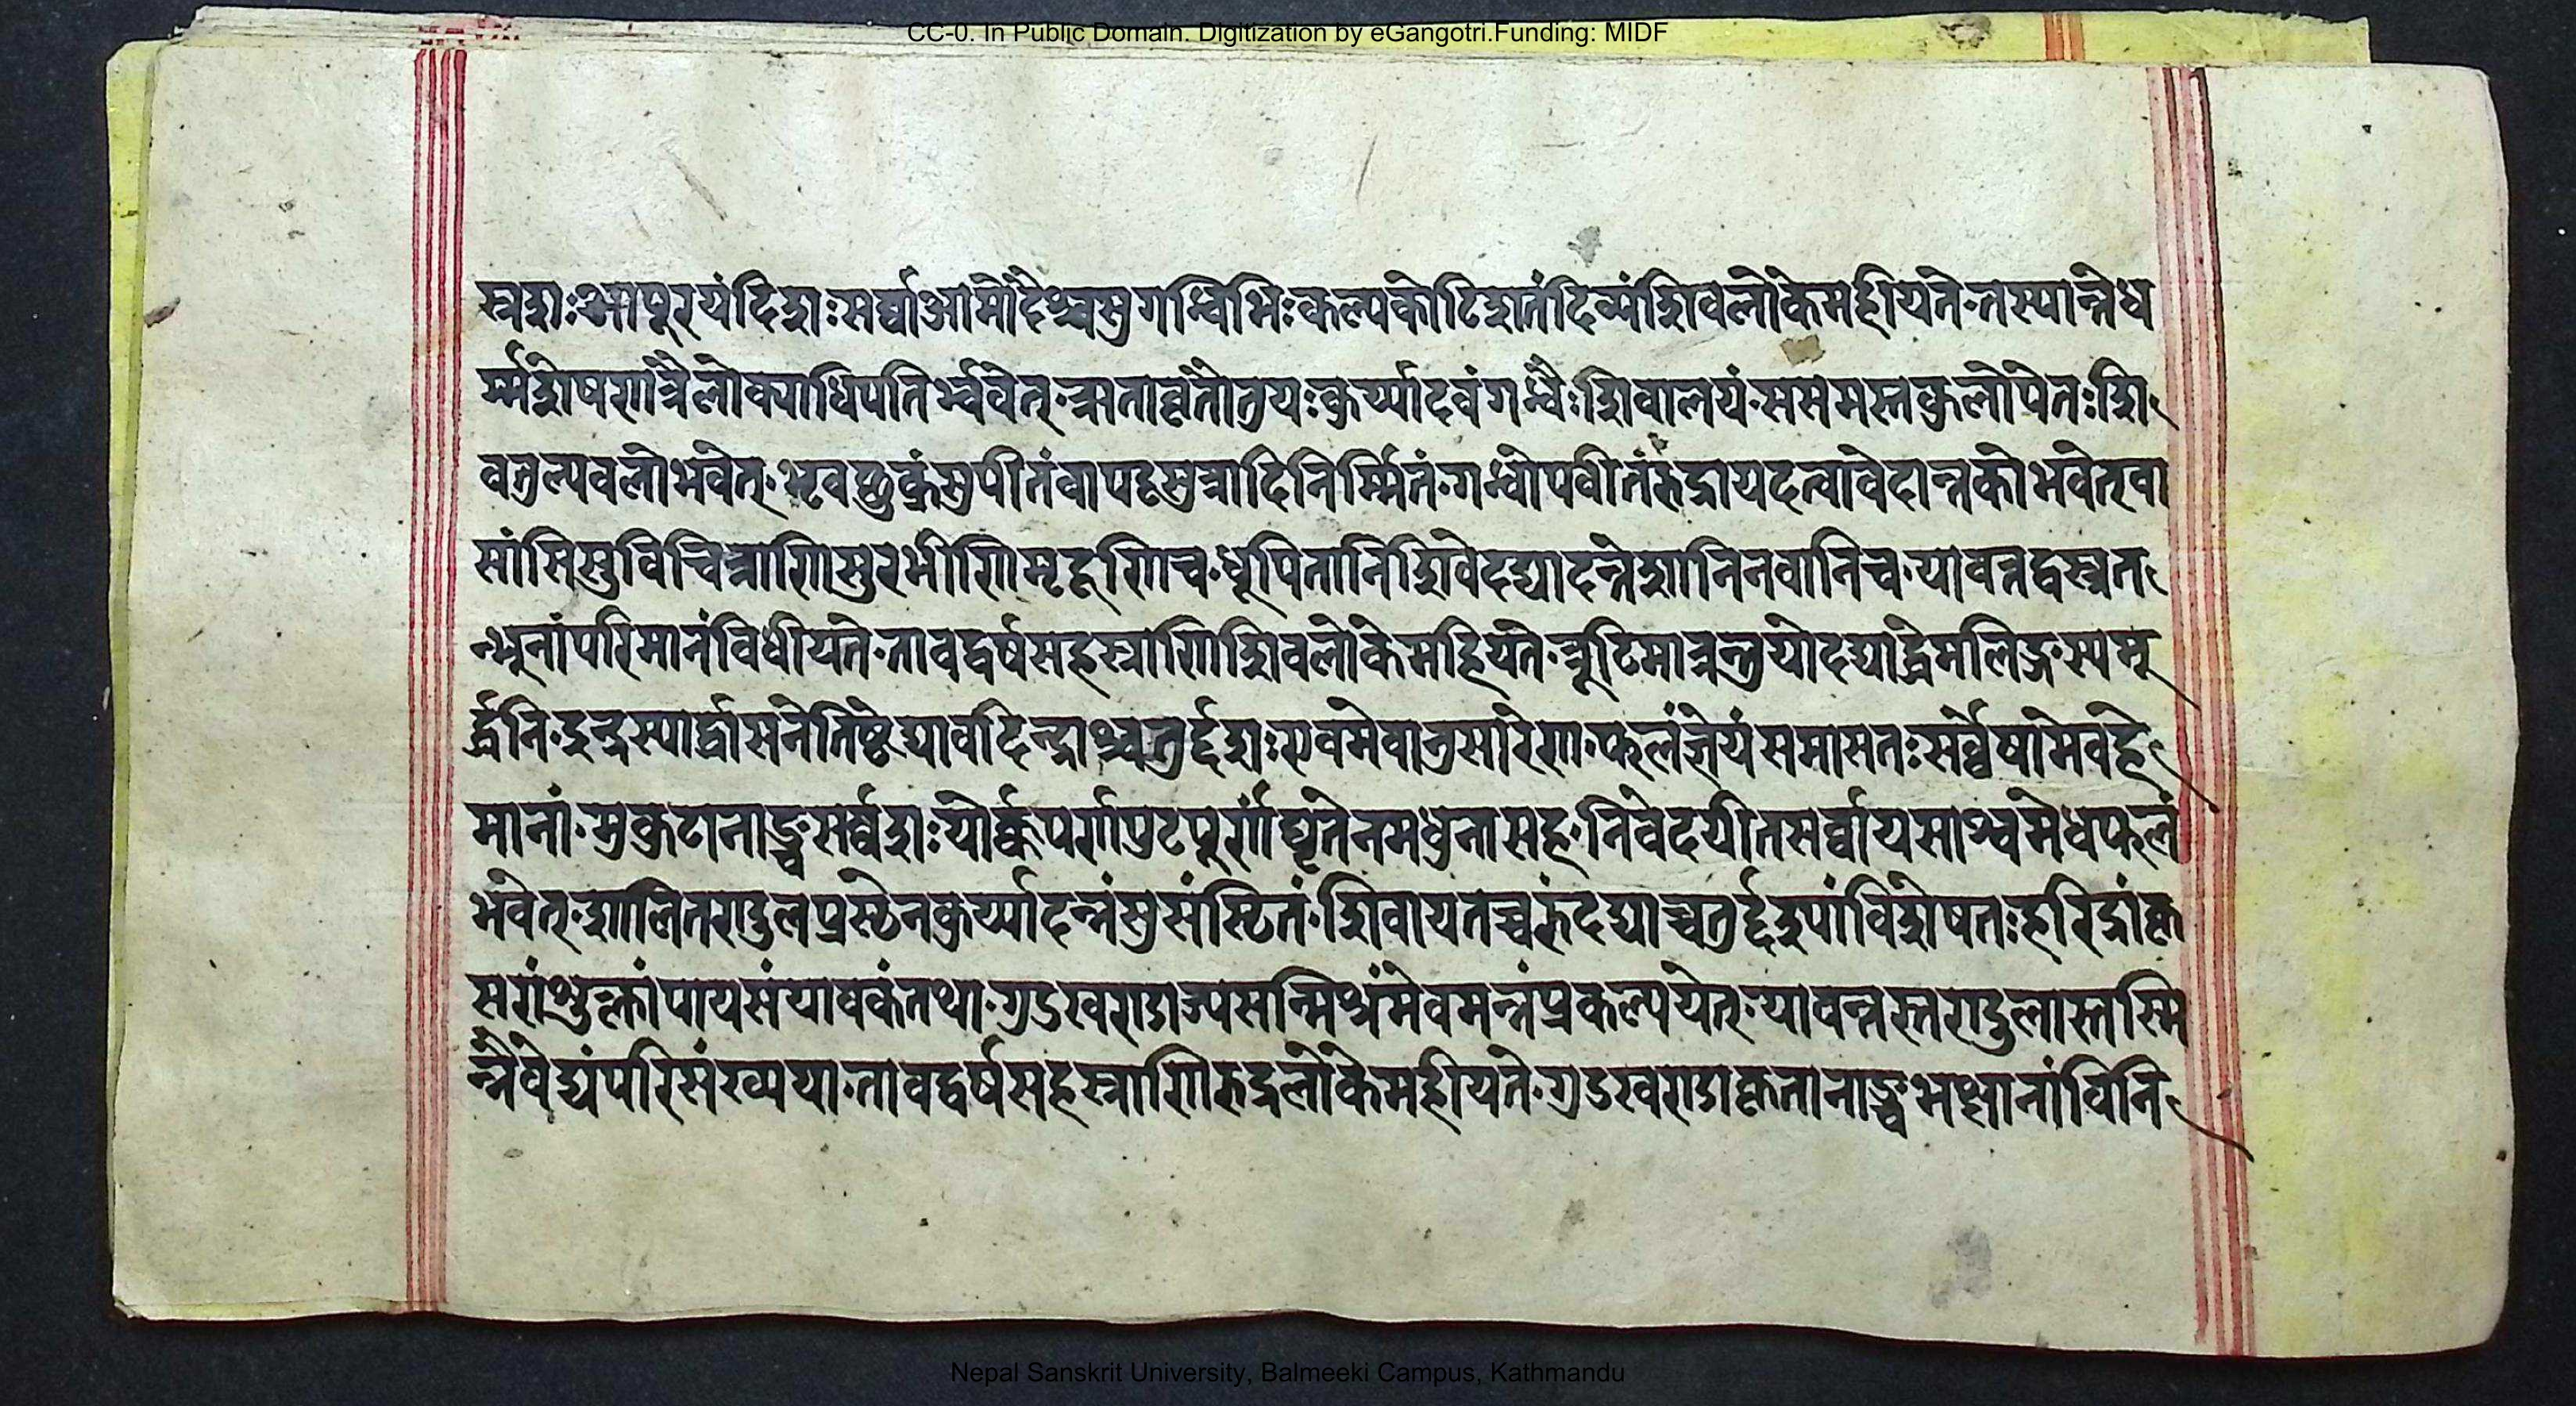 CC-0. In Public Domain. Digitization by eGangotri.Funding: MIDF
स्रशः आपुरयं दिशः सर्व्वा आमोदैश्च सुगन्धिभिः कल्पकोटिशतं दिव्यं शिवलोके महीयते ॰ तस्यान्ते ध
र्म्मशेषेण त्रैलोक्याधिपतिर्भवेत् ॰ कुर्य्यादेवं गन्धैः शिवालयं ॰ ससमस्तकुलोपेतः शि
वतुल्यवलो भवेत् ॰ सुपीतं वा पट्टसुत्रादिनिर्म्मितं ॰ गन्धोपवीतं रुद्राय दत्वा वेदान्तको भवेत् वा
सांसि सुविचित्राणि सुरभीणि मृदूणि च ॰ धूपितानि शिवे दद्याद नवानि च ॰ यावत्तद्वस्त्रत
न्भूनां परिमानं विधीयते ॰ तावद्वर्षसहस्त्राणि शिवलोके महियते ॰ त्रूटिमात्रन्तु यो दद्याद्धेमलिङ्गस्य मू
र्द्धनि ॰ इन्द्रस्यार्द्धासने तिष्टेद्यावदिन्द्राश्चतुर्द्दश ॰ एवमेवानुसारेण ॰ फलं ज्ञेयं समासतः सर्व्वेषामेव हे
मानां ॰ मुकुटानाञ्च सर्व्वशः यो पर्णपुटपूर्णं घृतेन मधुना सह ॰ निवेदयीत सर्व्वाय साश्वमेधफलं
भवेत् ॰ शालितण्डुलप्रस्ठेन कुर्य्यादन्नं सुसंस्ठितं ॰ शिवाय तच्चरुं दद्याच्चतुर्द्दश्यां विशेषतः हरिद्रां कृ
सरां पायसं यावकं तथा ॰ गुडखण्डाज्यसन्मिश्रं मेवमन्नं प्रकल्पयेत् ॰ यावन्नस्तण्डुलास्तस्मि
न्नैवेद्यं परिसंख्यया ॰ तावद्वर्षसहस्त्राणि रुद्रलोके महीयते ॰ गुडखण्डाकृतानाञ्च भक्ष्यानां विनि
Nepal Sanskrit University, Balmeeki Campus, Kathmandu